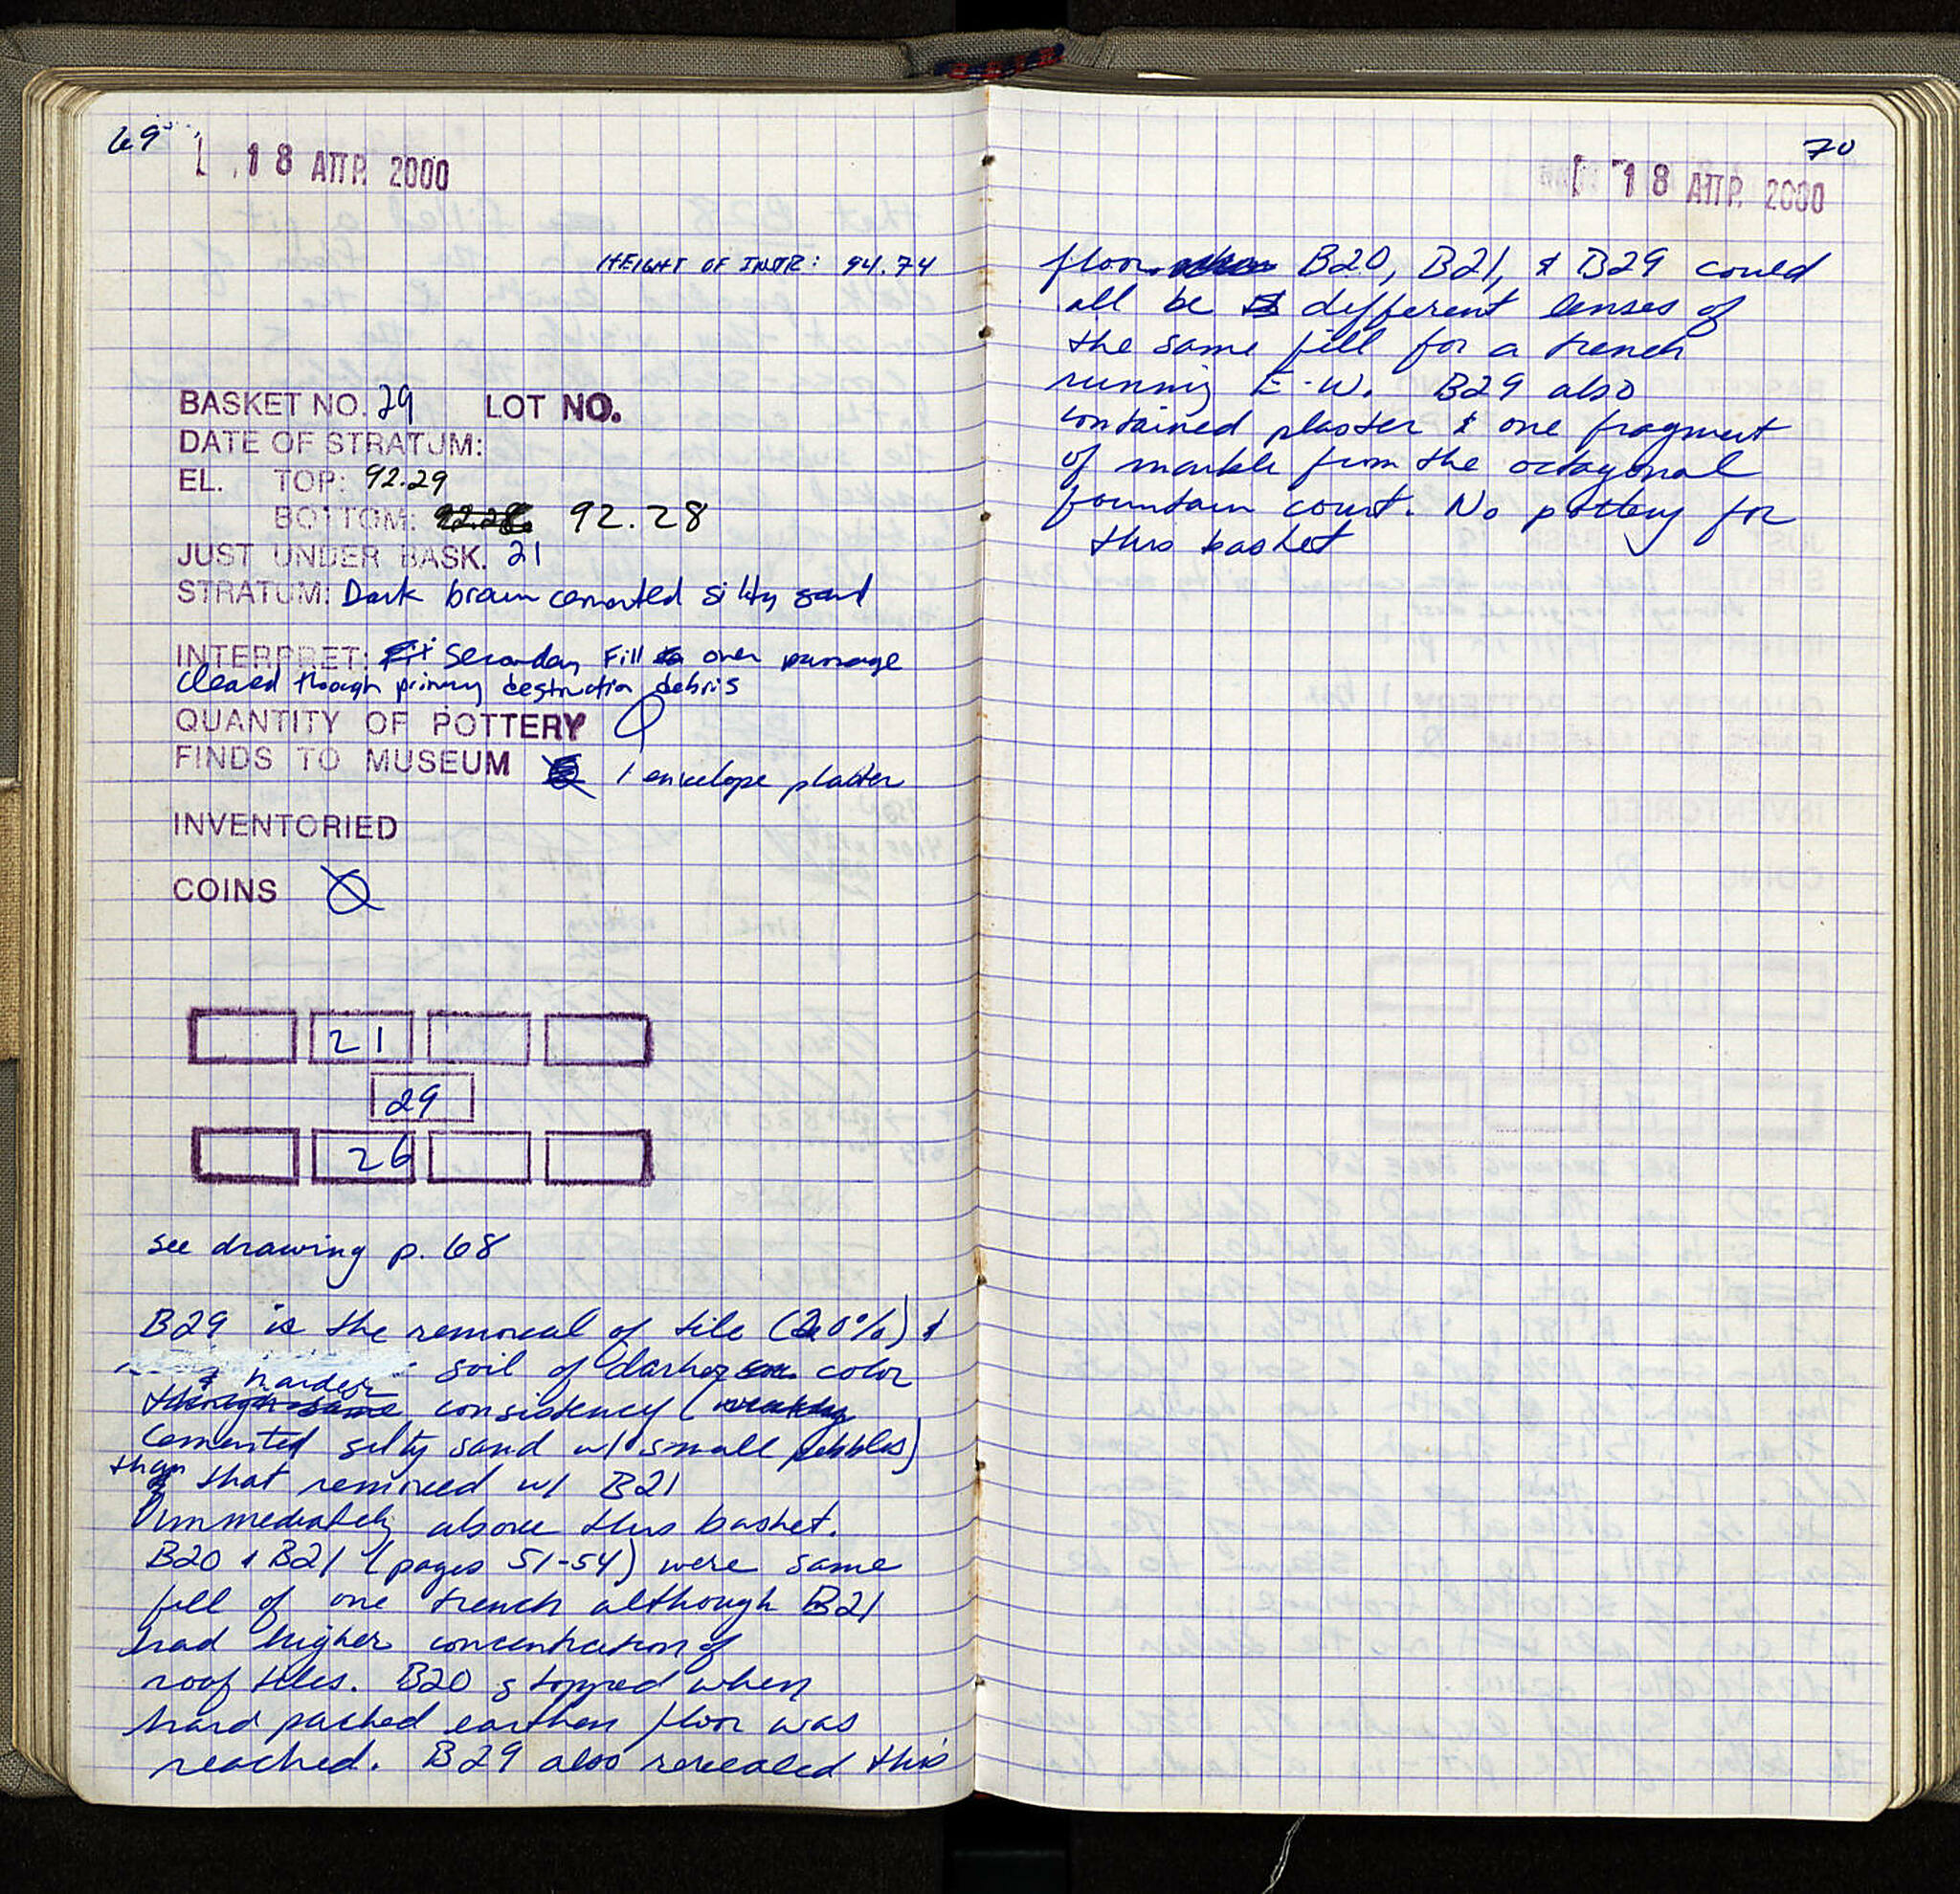 69
18 ΑΠΡ. 2000
HEIGHT OF INSTR: 94.74
BASKET NO. 29 LOT NO.
DATE OF STRATUM:
EL. TOP: 92.29
BOTTOM: 92.28
JUST UNDER BASK. 21
STRATUM: Dark brown cemented silty sand
INTERPRET: Secondary Fill over passage
cleared through primary destruction debris
QUANTITY OF POTTERY Ø
FINDS TO MUSEUM 1 envelope plaster
INVENTORIED
COINS Ø
21
29
26
see drawing p. 68
B29 is the removal of tile (20%) &
soil of darker color
& harder
though same consistency (weakly
cemented silty sand w/ small pebbles)
than that removed w/ B21
immediately above this basket.
B20 & B21 (pages 51-54) were same
fill of one trench although B21
had higher concentration of
roof tiles. B20 stopped when
hard packed earthen floor was
reached. B29 also revealed this
70
18 ΑΠΡ. 2000
floor. B20, B21, & B29 could
all be different lenses of
the same fill for a trench
running E-W. B29 also
contained plaster & one fragment
of marble from the octagonal
fountain court. No pottery for
this basket